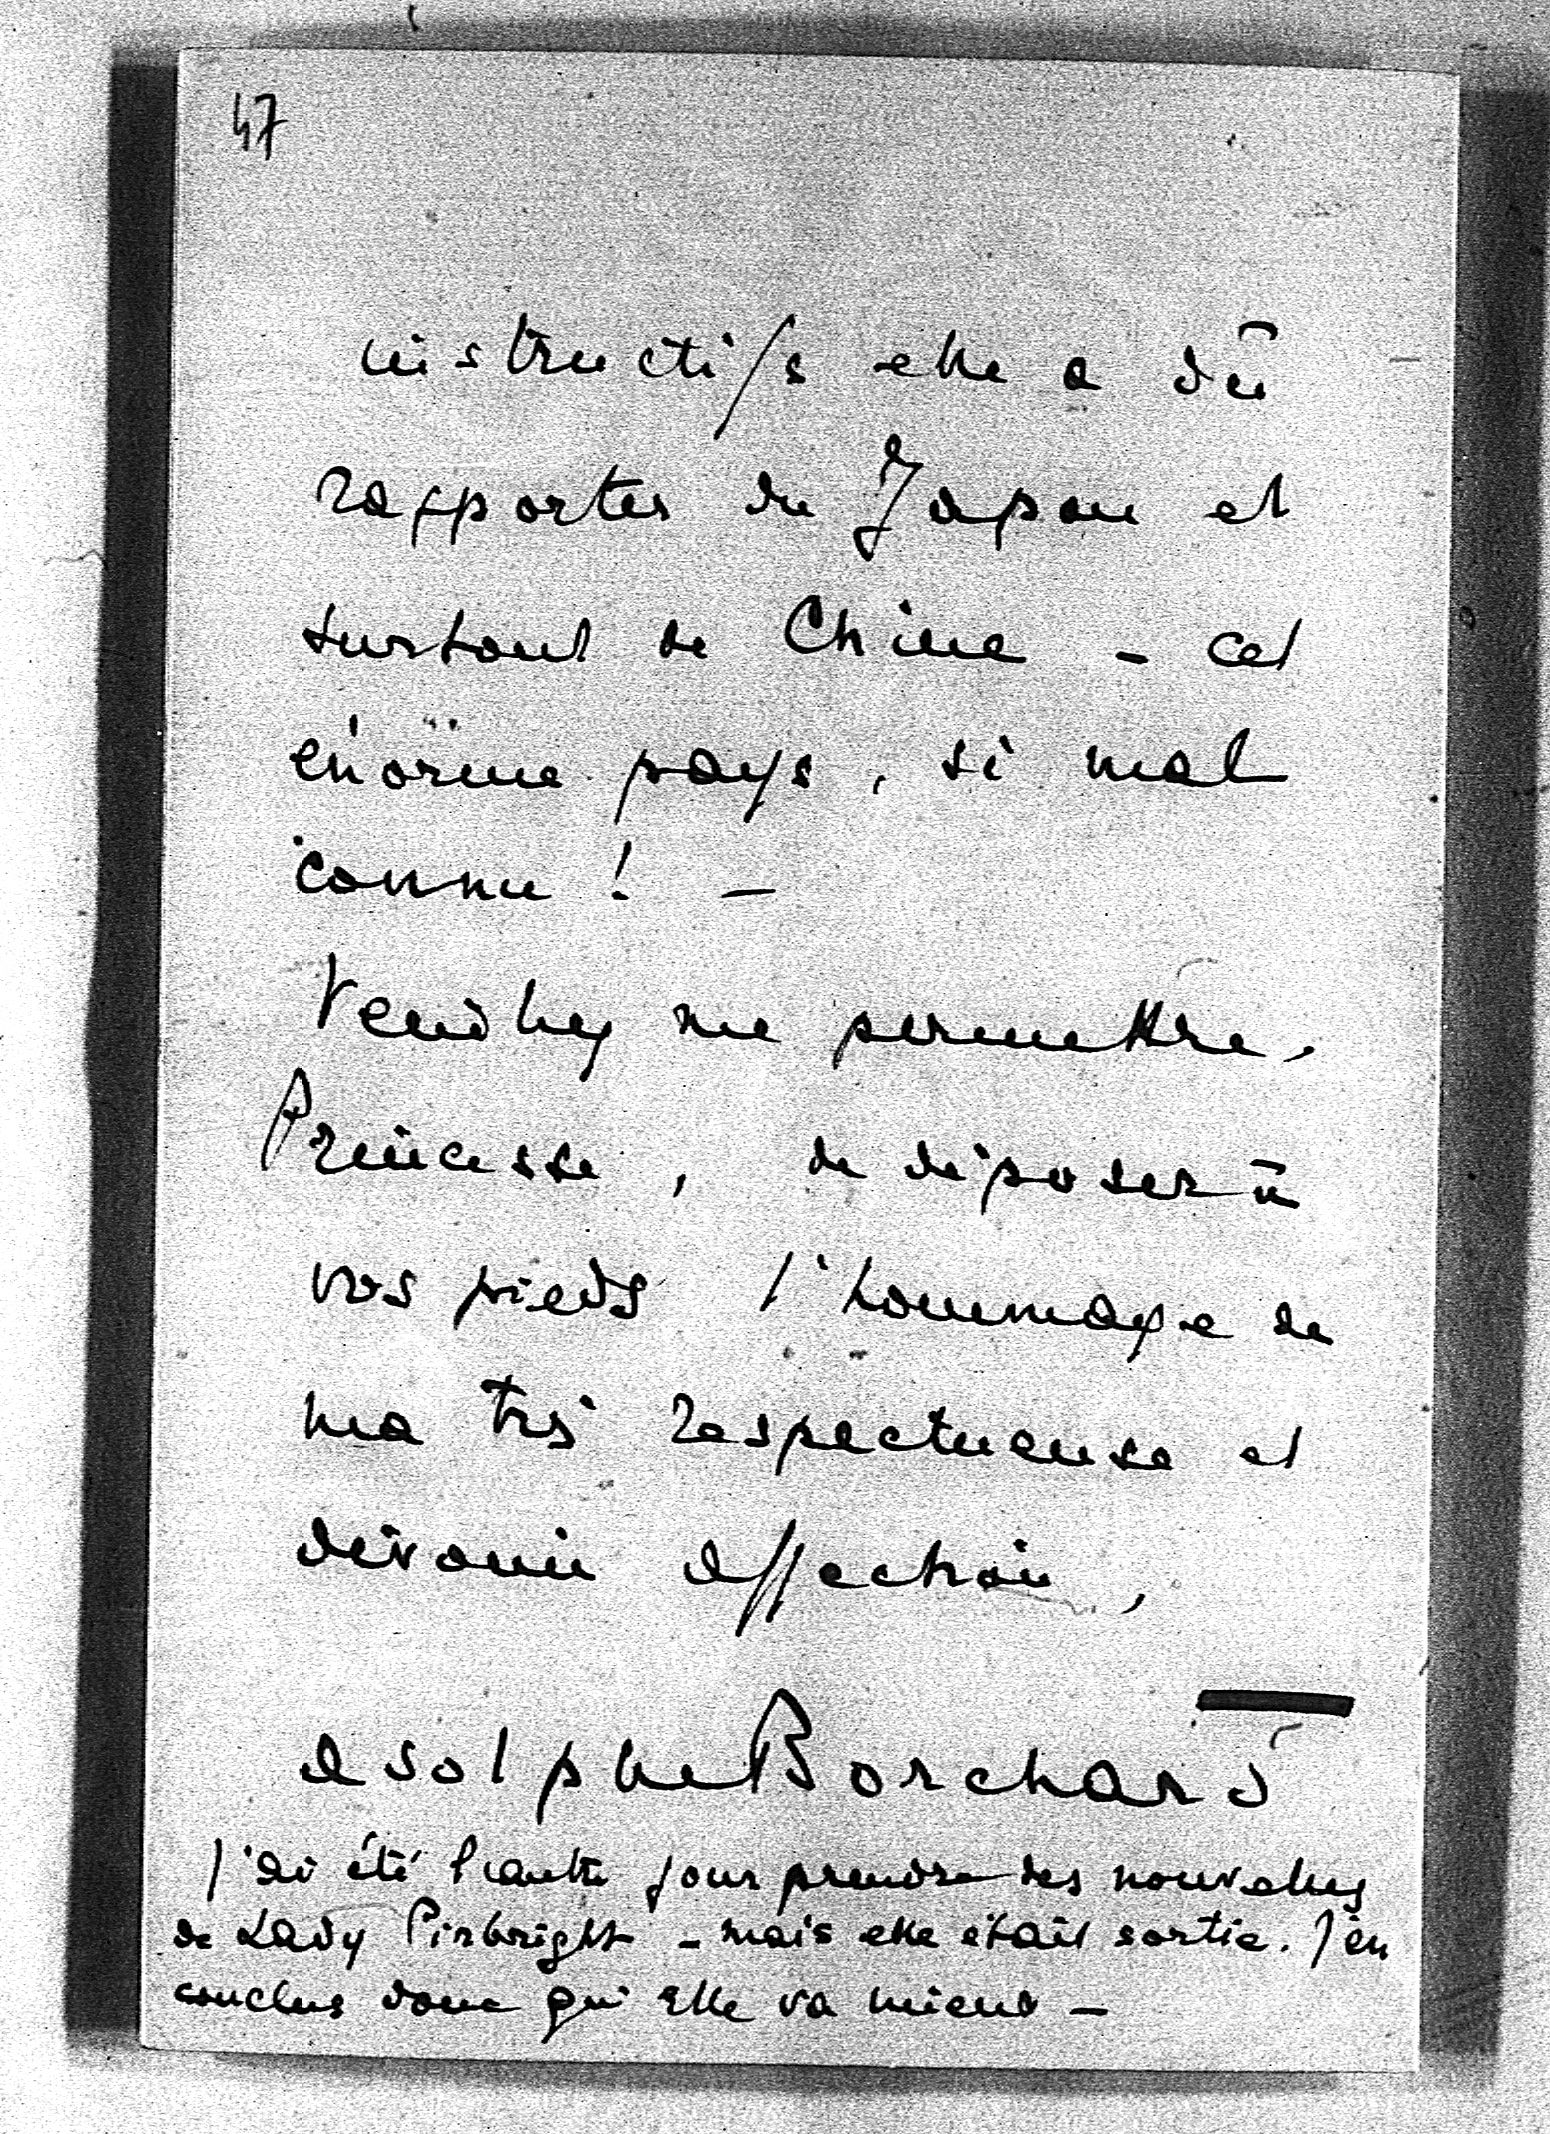 47
instructifs elle a dû
rapporter du Japon et
surtout de Chine - cet
énorme pays, si mal
connu ! -
Veuillez me permettre,
Princesse, de déposer à
vos pieds l'hommage de
ma très respectueuse et
dévouée affection,
Adolphe Borchard
J'ai été l'autre jour prendre des nouvelles
de Lady Pirbright - mais elle était sortie. J'en
conclus donc qu'elle va mieux -